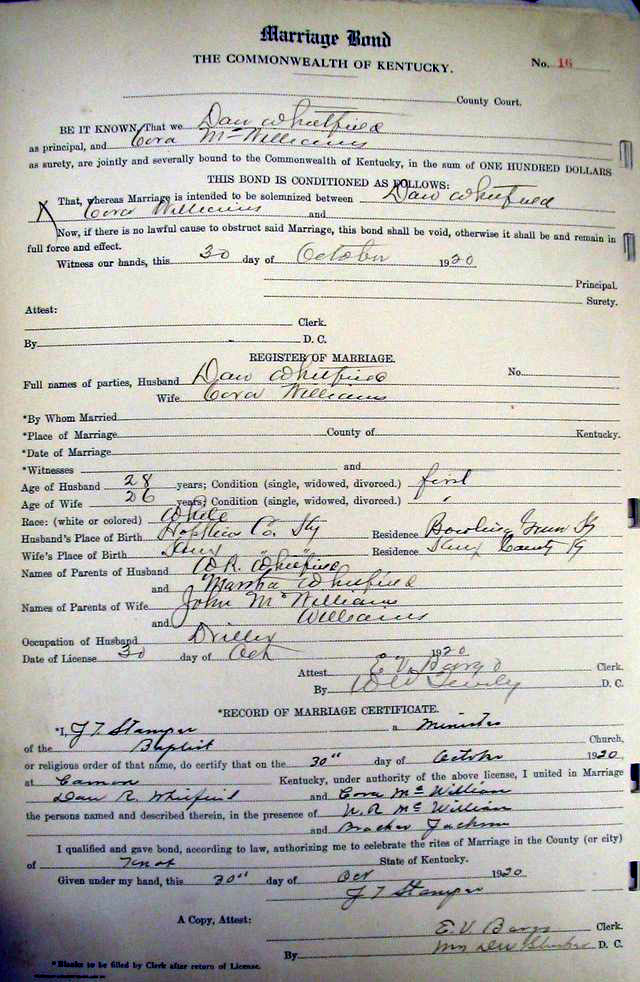 Marriage Bond
THE COMMONWEALTH OF KENTUCKY.
No. 16
County Court.
BE IT KNOWN, That we Dan Whitfield
as principal, and Cora McWilliams
as surety, are jointly and severally bound to the Commonwealth of Kentucky, in the sum of ONE HUNDRED DOLLARS
THIS BOND IS CONDITIONED AS FOLLOWS:
That, whereas Marriage is intended to be solemnized between Dan Whitfield
X Cora Williams and
Now, if there is no lawful cause to obstruct said Marriage, this bond shall be void, otherwise it shall be and remain in
full force and effect.
Witness our hands, this 30 day of October 1920
Principal.
Surety.
Attest:
Clerk.
By D. C.
REGISTER OF MARRIAGE.
Full names of parties, Husband Dan Whitfield No.
Wife Cora Williams
*By Whom Married
*Place of Marriage County of Kentucky.
*Date of Marriage
*Witnesses and
Age of Husband 28 years; Condition (single, widowed, divorced.) first
Age of Wife 26 years; Condition (single, widowed, divorced.) "
Race: (white or colored) White
Husband's Place of Birth Hopkins Co. Ky Residence Bowling Green Ky
Wife's Place of Birth Residence County Ky
Names of Parents of Husband W.R. Whitfield
and Martha Whitfield
Names of Parents of Wife John McWilliams
and Williams
Occupation of Husband Driller
Date of License 30 day of Oct 1920
Attest E. V. Bargo Clerk.
By D. C.
*RECORD OF MARRIAGE CERTIFICATE.
*I, J T Stamper a Minister
of the Baptist Church,
or religious order of that name, do certify that on the 30" day of October 1920,
at Kentucky, under authority of the above license, I united in Marriage
Dan R. Whitfield and Cora McWilliam
the persons named and described therein, in the presence of McWilliam
and
I qualified and gave bond, according to law, authorizing me to celebrate the rites of Marriage in the County (or city)
of Knot State of Kentucky.
Given under my hand, this 30" day of Oct 1920
J T Stamper
A Copy, Attest: E. V. Bargo Clerk.
By D. C.
*Blanks to be filled by Clerk after return of License.